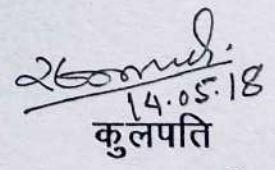 14.05.18
कुलपति